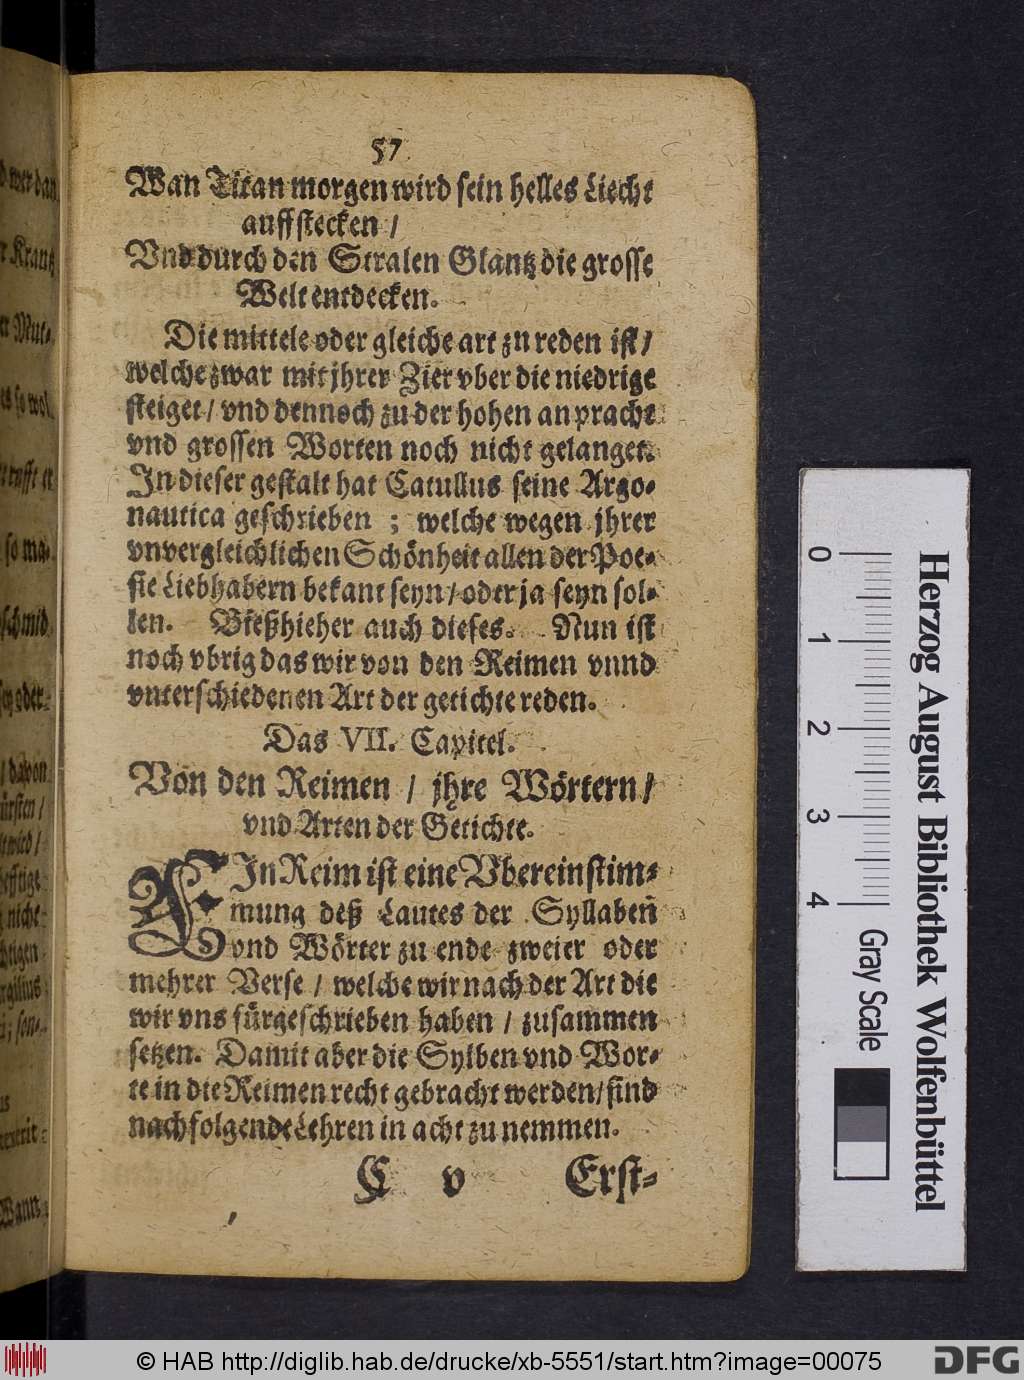 57
Wan Titan morgen wird sein helles Liecht
auffstecken /
Vnd durch den Stralen Glantz die grosse
Welt entdecken.
Die mittele oder gleiche art zu reden ist /
welche zwar mit jhrer Zier vber die niedrige
steiget / vnd dennoch zu der hohen an pracht
vnd grossen Worten noch nicht gelanget.
In dieser gestalt hat Catullus seine Argo-
nautica geschrieben ; welche wegen jhrer
vnvergleichlichen Schönheit allen der Poe-
sie Liebhabern bekant seyn / oder ja seyn sol-
len. Bießhieher auch dieses. Nun ist
noch vbrig das wir von den Reimen vnnd
vnterschiedenen Art der getichte reden.
Das VII. Capitel.
Von den Reimen / jhre Wörtern /
vnd Arten der Getichte.
EIn Reim ist eine Vbereinstim-
mung deß Lautes der Syllabeñ
vnd Wörter zu ende zweier oder
mehrer Verse / welche wir nach der Art die
wir vns fürgeschrieben haben / zusammen
setzen. Damit aber die Sylben vnd Wor-
te in die Reimen recht gebracht werden / sind
nachfolgende Lehren in acht zu nemmen.
C v Erst-
0 1 2 3 4
Gray Scale
Herzog August Bibliothek Wolfenbüttel
© HAB http://diglib.hab.de/drucke/xb-5551/start.htm?image=00075
DFG